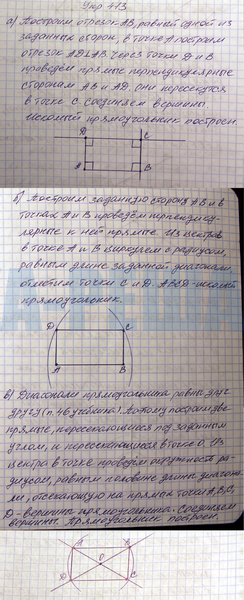 Упр 413
а) Построим отрезок AB, равный одной из
заданных сторон, в точке A построим
отрезок AD⊥AB. Через точки D и B
проведём прямые перпендикулярные
сторонам AB и AD. Они пересекутся
в точке C. Соединяем вершины.
Искомый прямоугольник построен.
D C
A B
б) Построим заданную сторону AB и в
точках A и B проведём перпендику-
лярные к ней прямые. Из центров
в точке A и B циркулем с радиусом,
равным длине заданной диагонали,
отметим точки C и D. ABCD - искомый
прямоугольник.
D C
A B
в) Диагонали прямоугольника равны друг
другу (п. 46 учебника). Поэтому построим две
прямые, пересекающиеся под заданным
углом, и пересекающиеся в точке O. Из
центра в точке проведём окружность ра-
диусом, равным половине длине диагона-
ли, отсекающую на прямых точки A, B, C,
D - вершины прямоугольника. Соединяем
вершины. Прямоугольник построен.
A B
O
D C